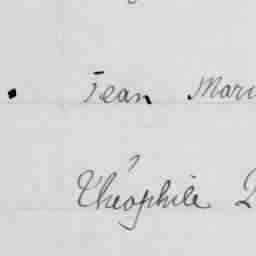 Jean Mari
Théophile